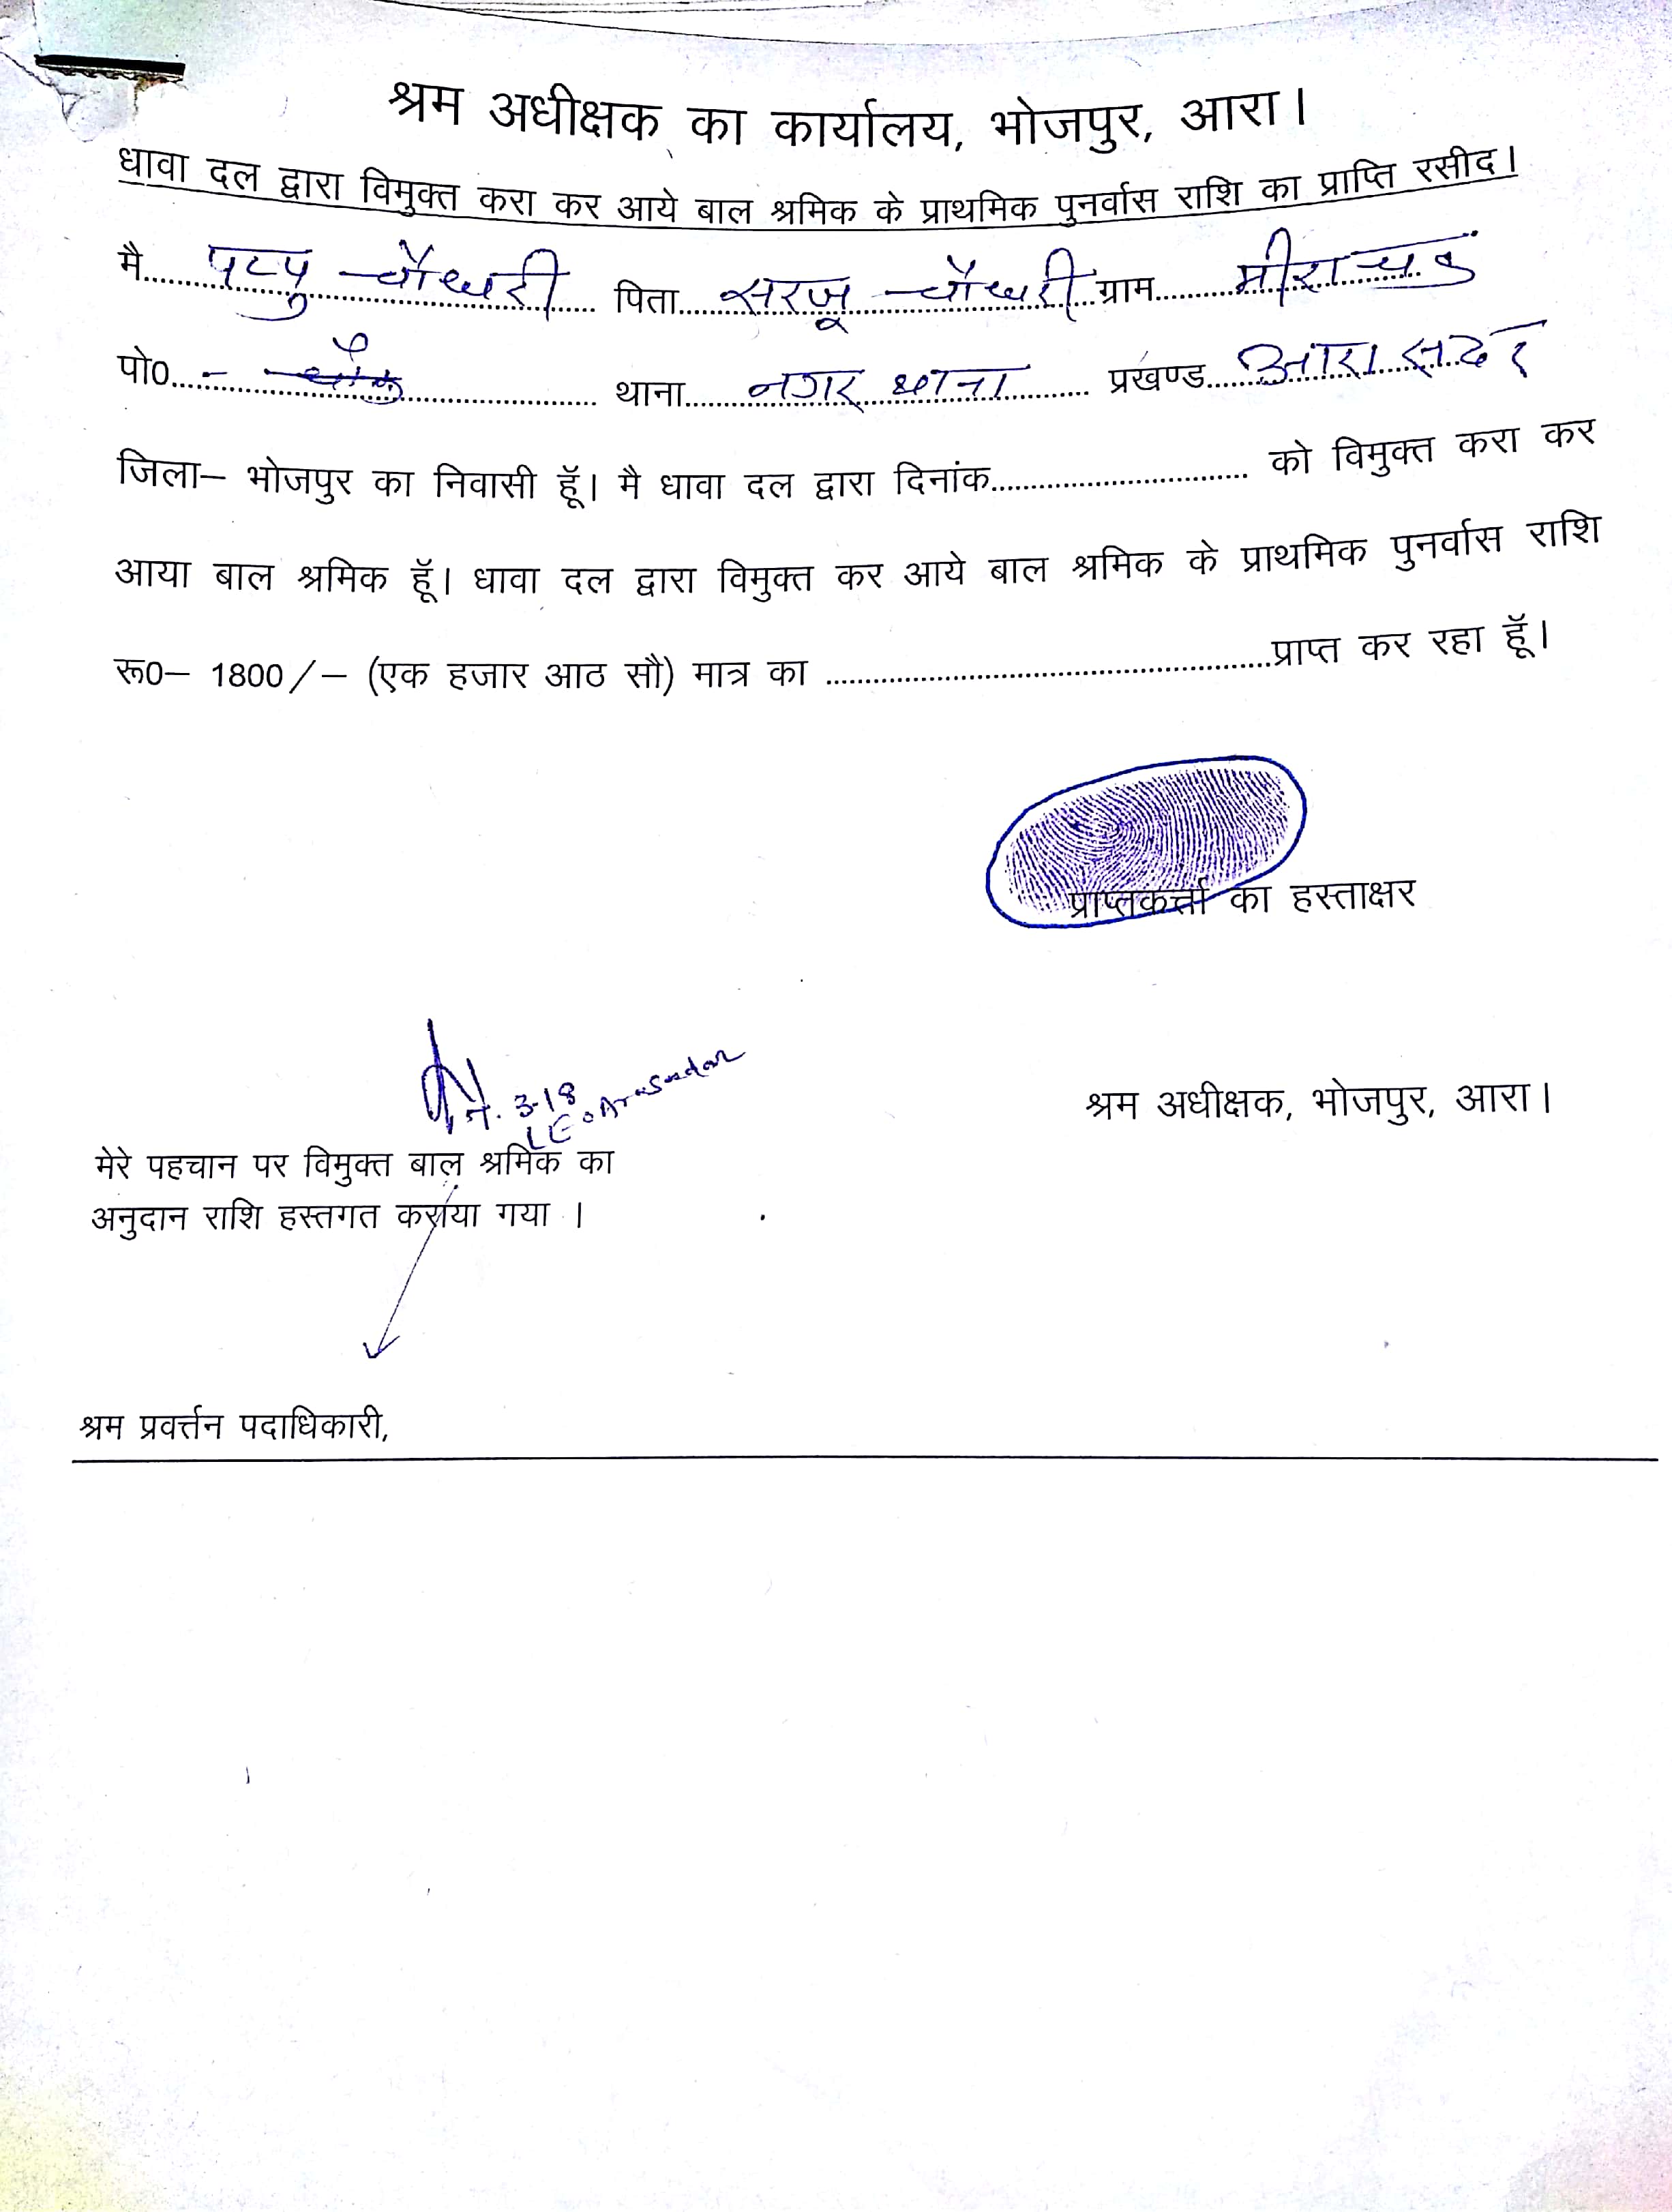 श्रम अधीक्षक का कार्यालय, भोजपुर, आरा।
धावा दल द्वारा विमुक्त करा कर आये बाल श्रमिक के प्राथमिक पुनर्वास राशि का प्राप्ति रसीद।
मै..... पप्पु चौधरी ..... पिता..... सरजू चौधरी ..... ग्राम.....
पो०..... - चौक ..... थाना..... नगर थाना ..... प्रखण्ड..... आरा सदर
जिला– भोजपुर का निवासी हूॅं। मै धावा दल द्वारा दिनांक............................ को विमुक्त करा कर
आया बाल श्रमिक हूॅं। धावा दल द्वारा विमुक्त कर आये बाल श्रमिक के प्राथमिक पुनर्वास राशि
रू०– 1800/– (एक हजार आठ सौ) मात्र का ............................प्राप्त कर रहा हूॅं।
प्राप्तकर्त्ता का हस्ताक्षर
3-18
LEO Ara Sadar
श्रम अधीक्षक, भोजपुर, आरा।
मेरे पहचान पर विमुक्त बाल श्रमिक का
अनुदान राशि हस्तगत कराया गया ।
श्रम प्रवर्त्तन पदाधिकारी,